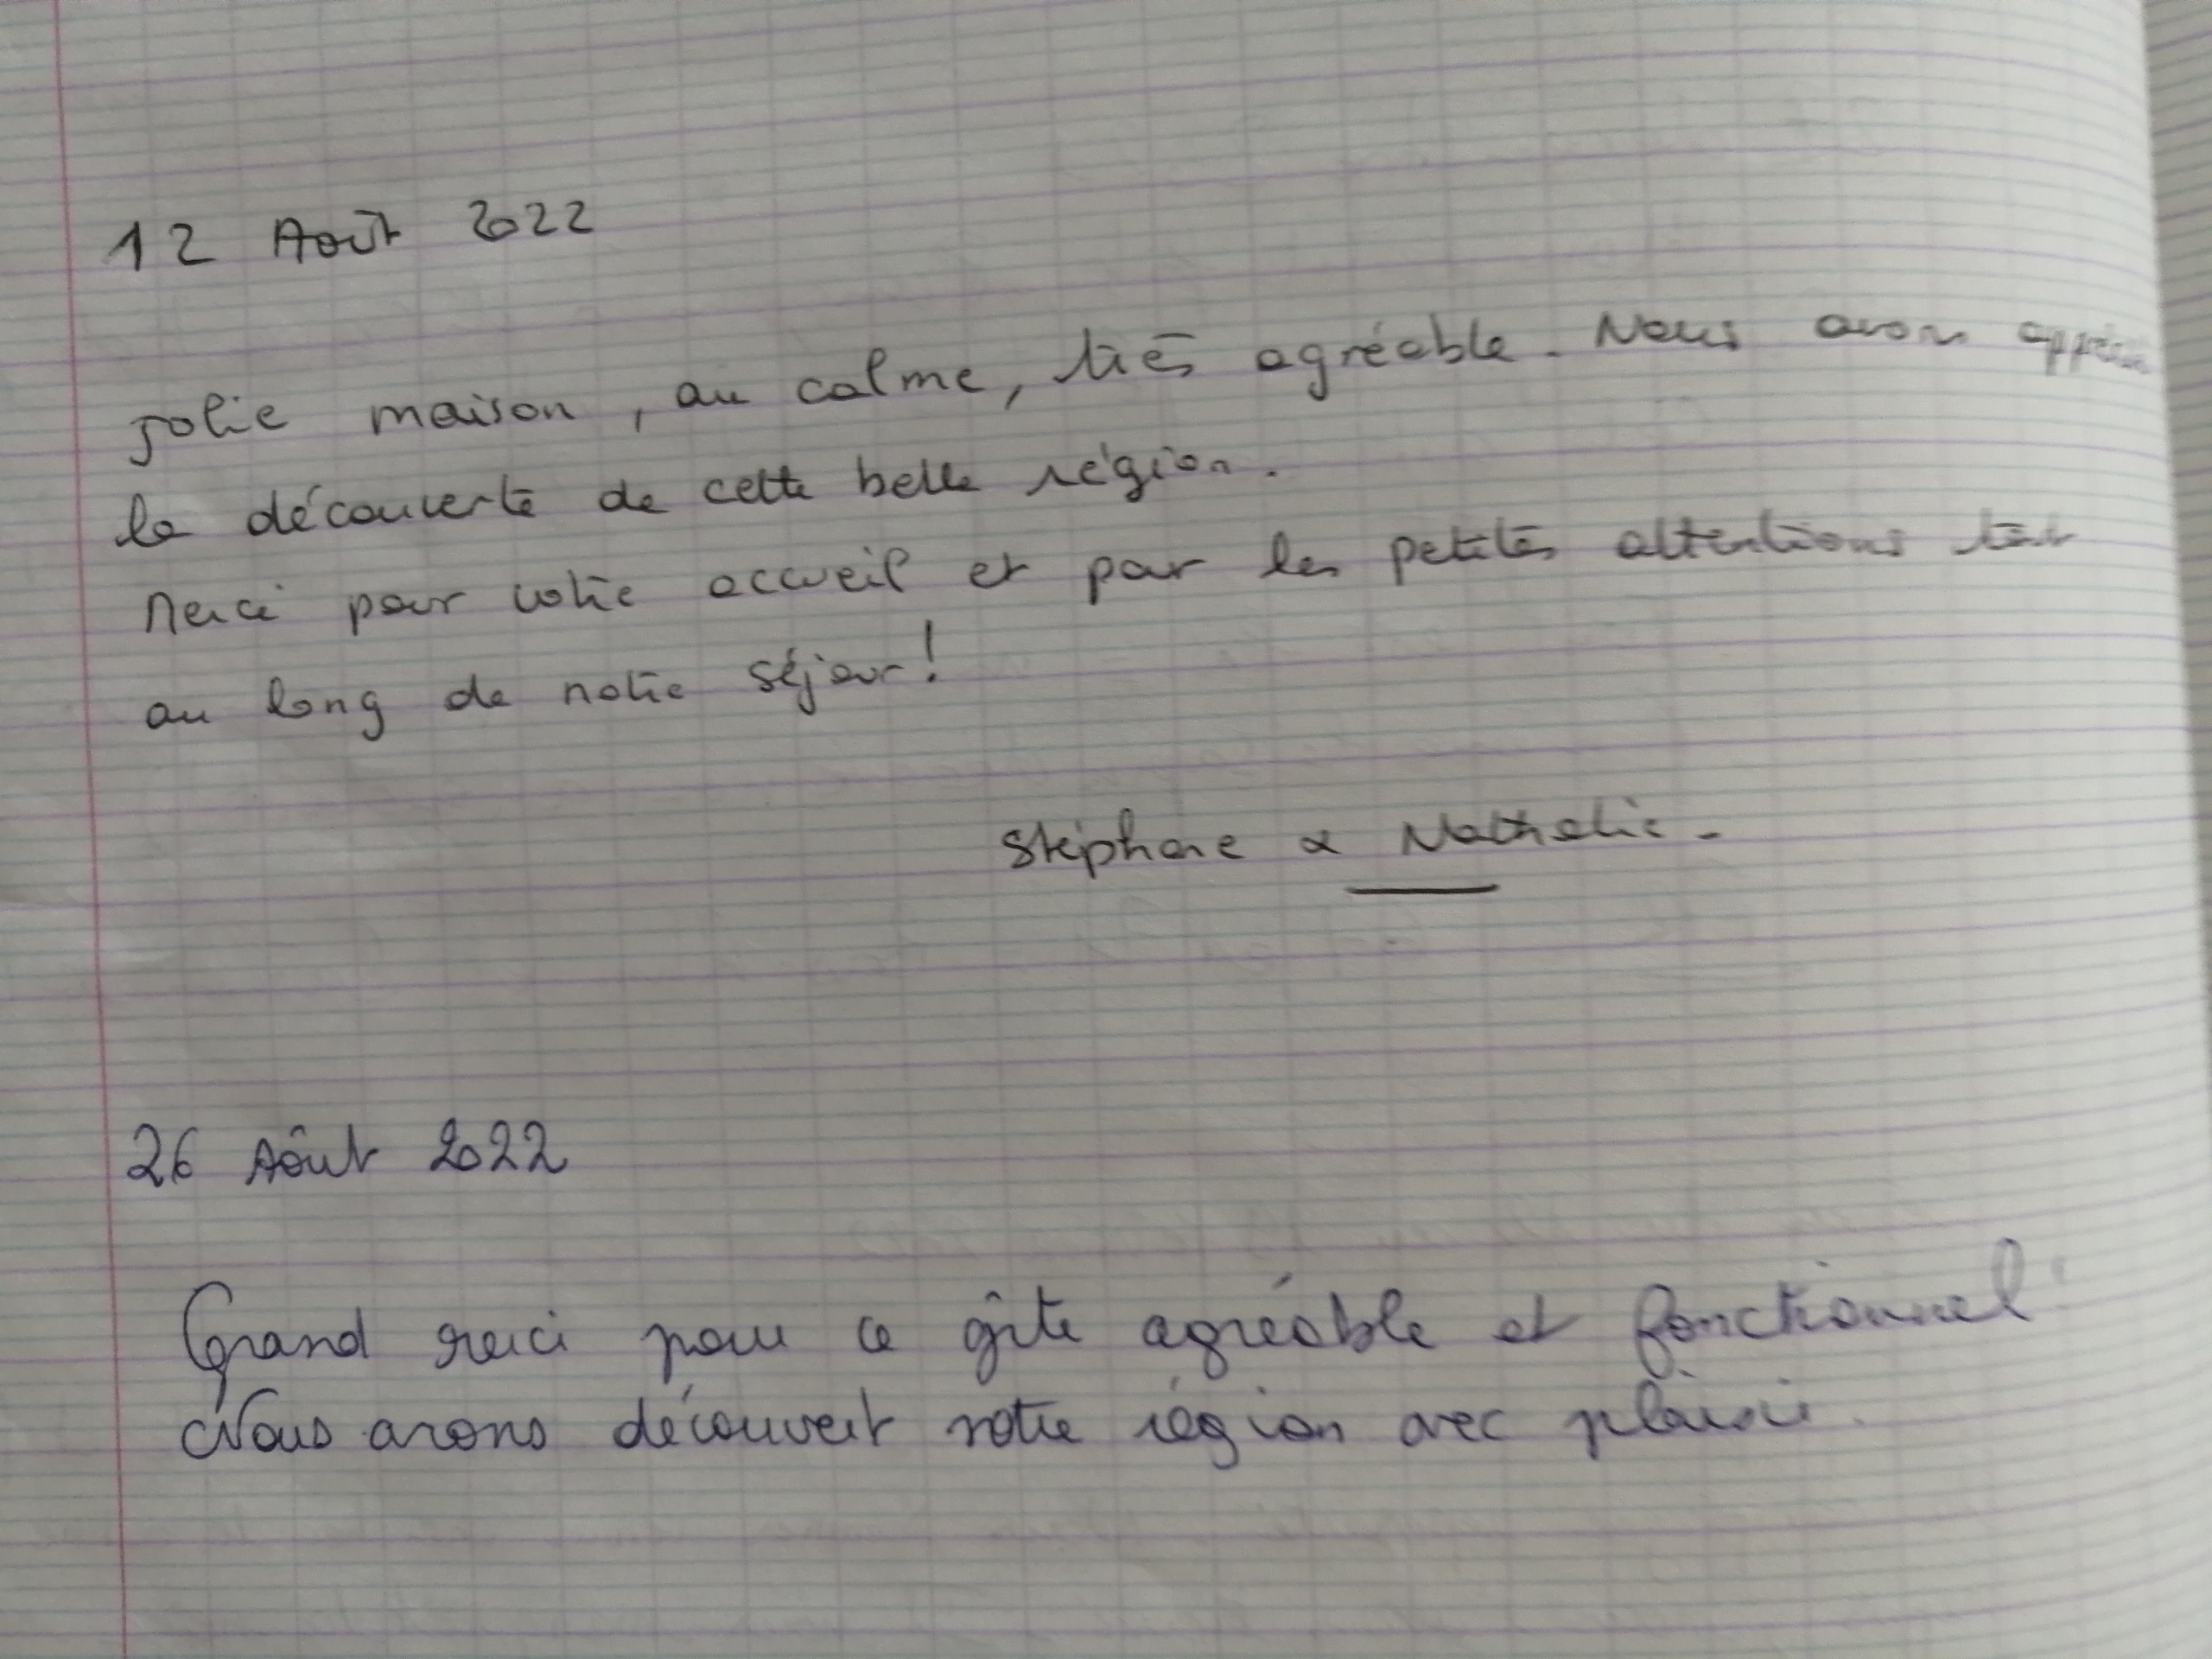 12 Août 2022
Jolie maison, au calme, très agréable. Nous avons apprécié
la découverte de cette belle région.
Merci pour votre accueil et pour les petites attentions tout
au long de notre séjour !
Stéphane & Nathalie.
26 Août 2022
Grand merci pour ce gîte agréable et fonctionnel
Nous avons découvert votre région avec plaisir.